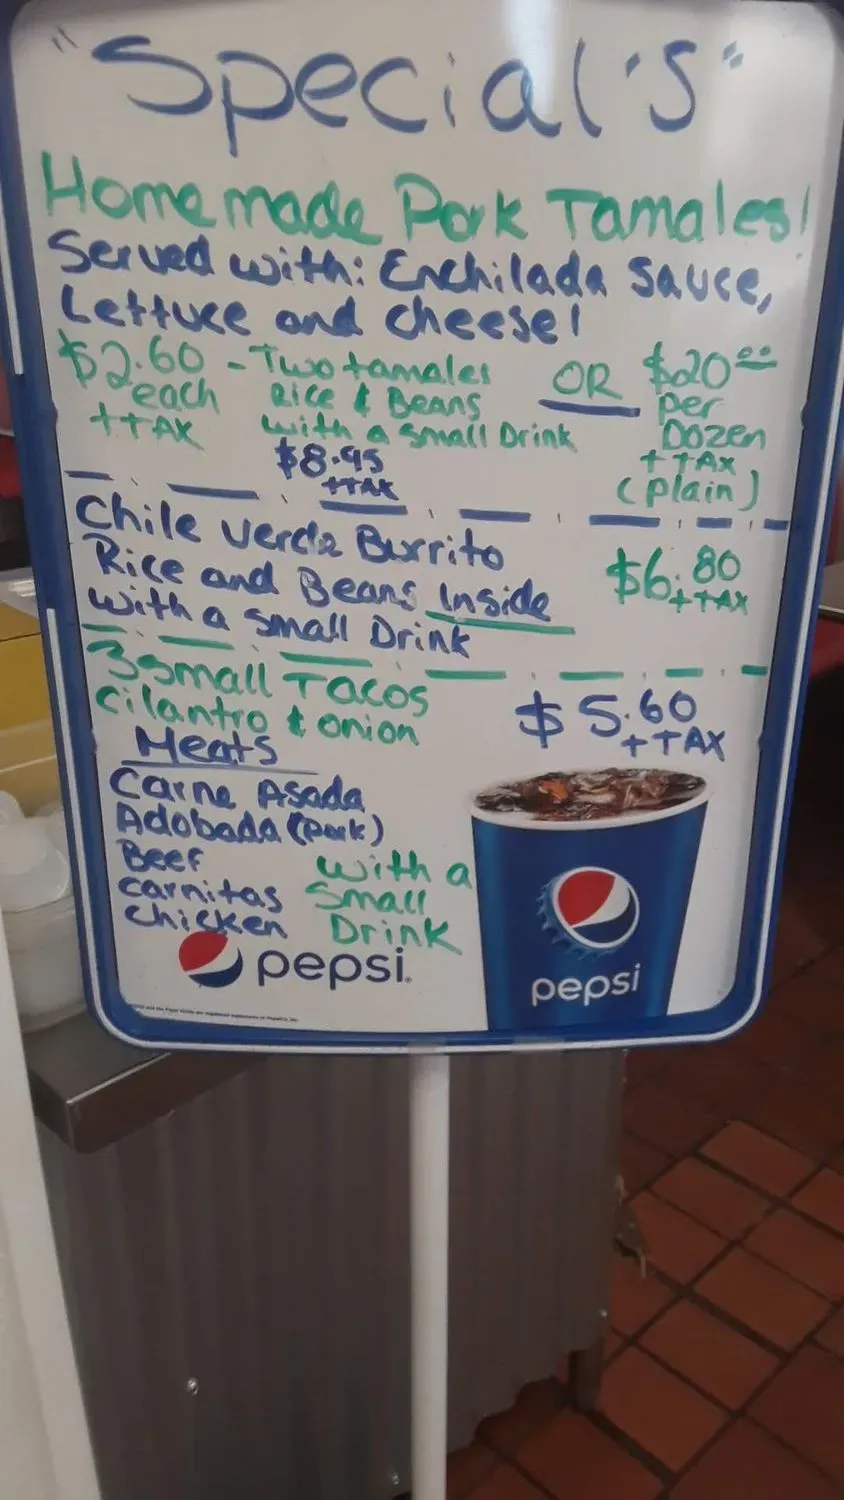 "Special's"
Homemade Pork Tamales!
Served with: Enchilada Sauce,
Lettuce and cheese!
$2.60 each + TAX
- Two tamales
Rice & Beans
with a small Drink
$8.95
+ TAX
OR
$20.00
per
Dozen
+ TAX
(plain)
Chile Verde Burrito
Rice and Beans Inside
with a small Drink
$6.80
+ TAX
3 small Tacos
cilantro & onion
$5.60
+ TAX
Meats
Carne Asada
Adobada (pork)
Beef
carnitas
chicken
with a
small
Drink
pepsi
pepsi